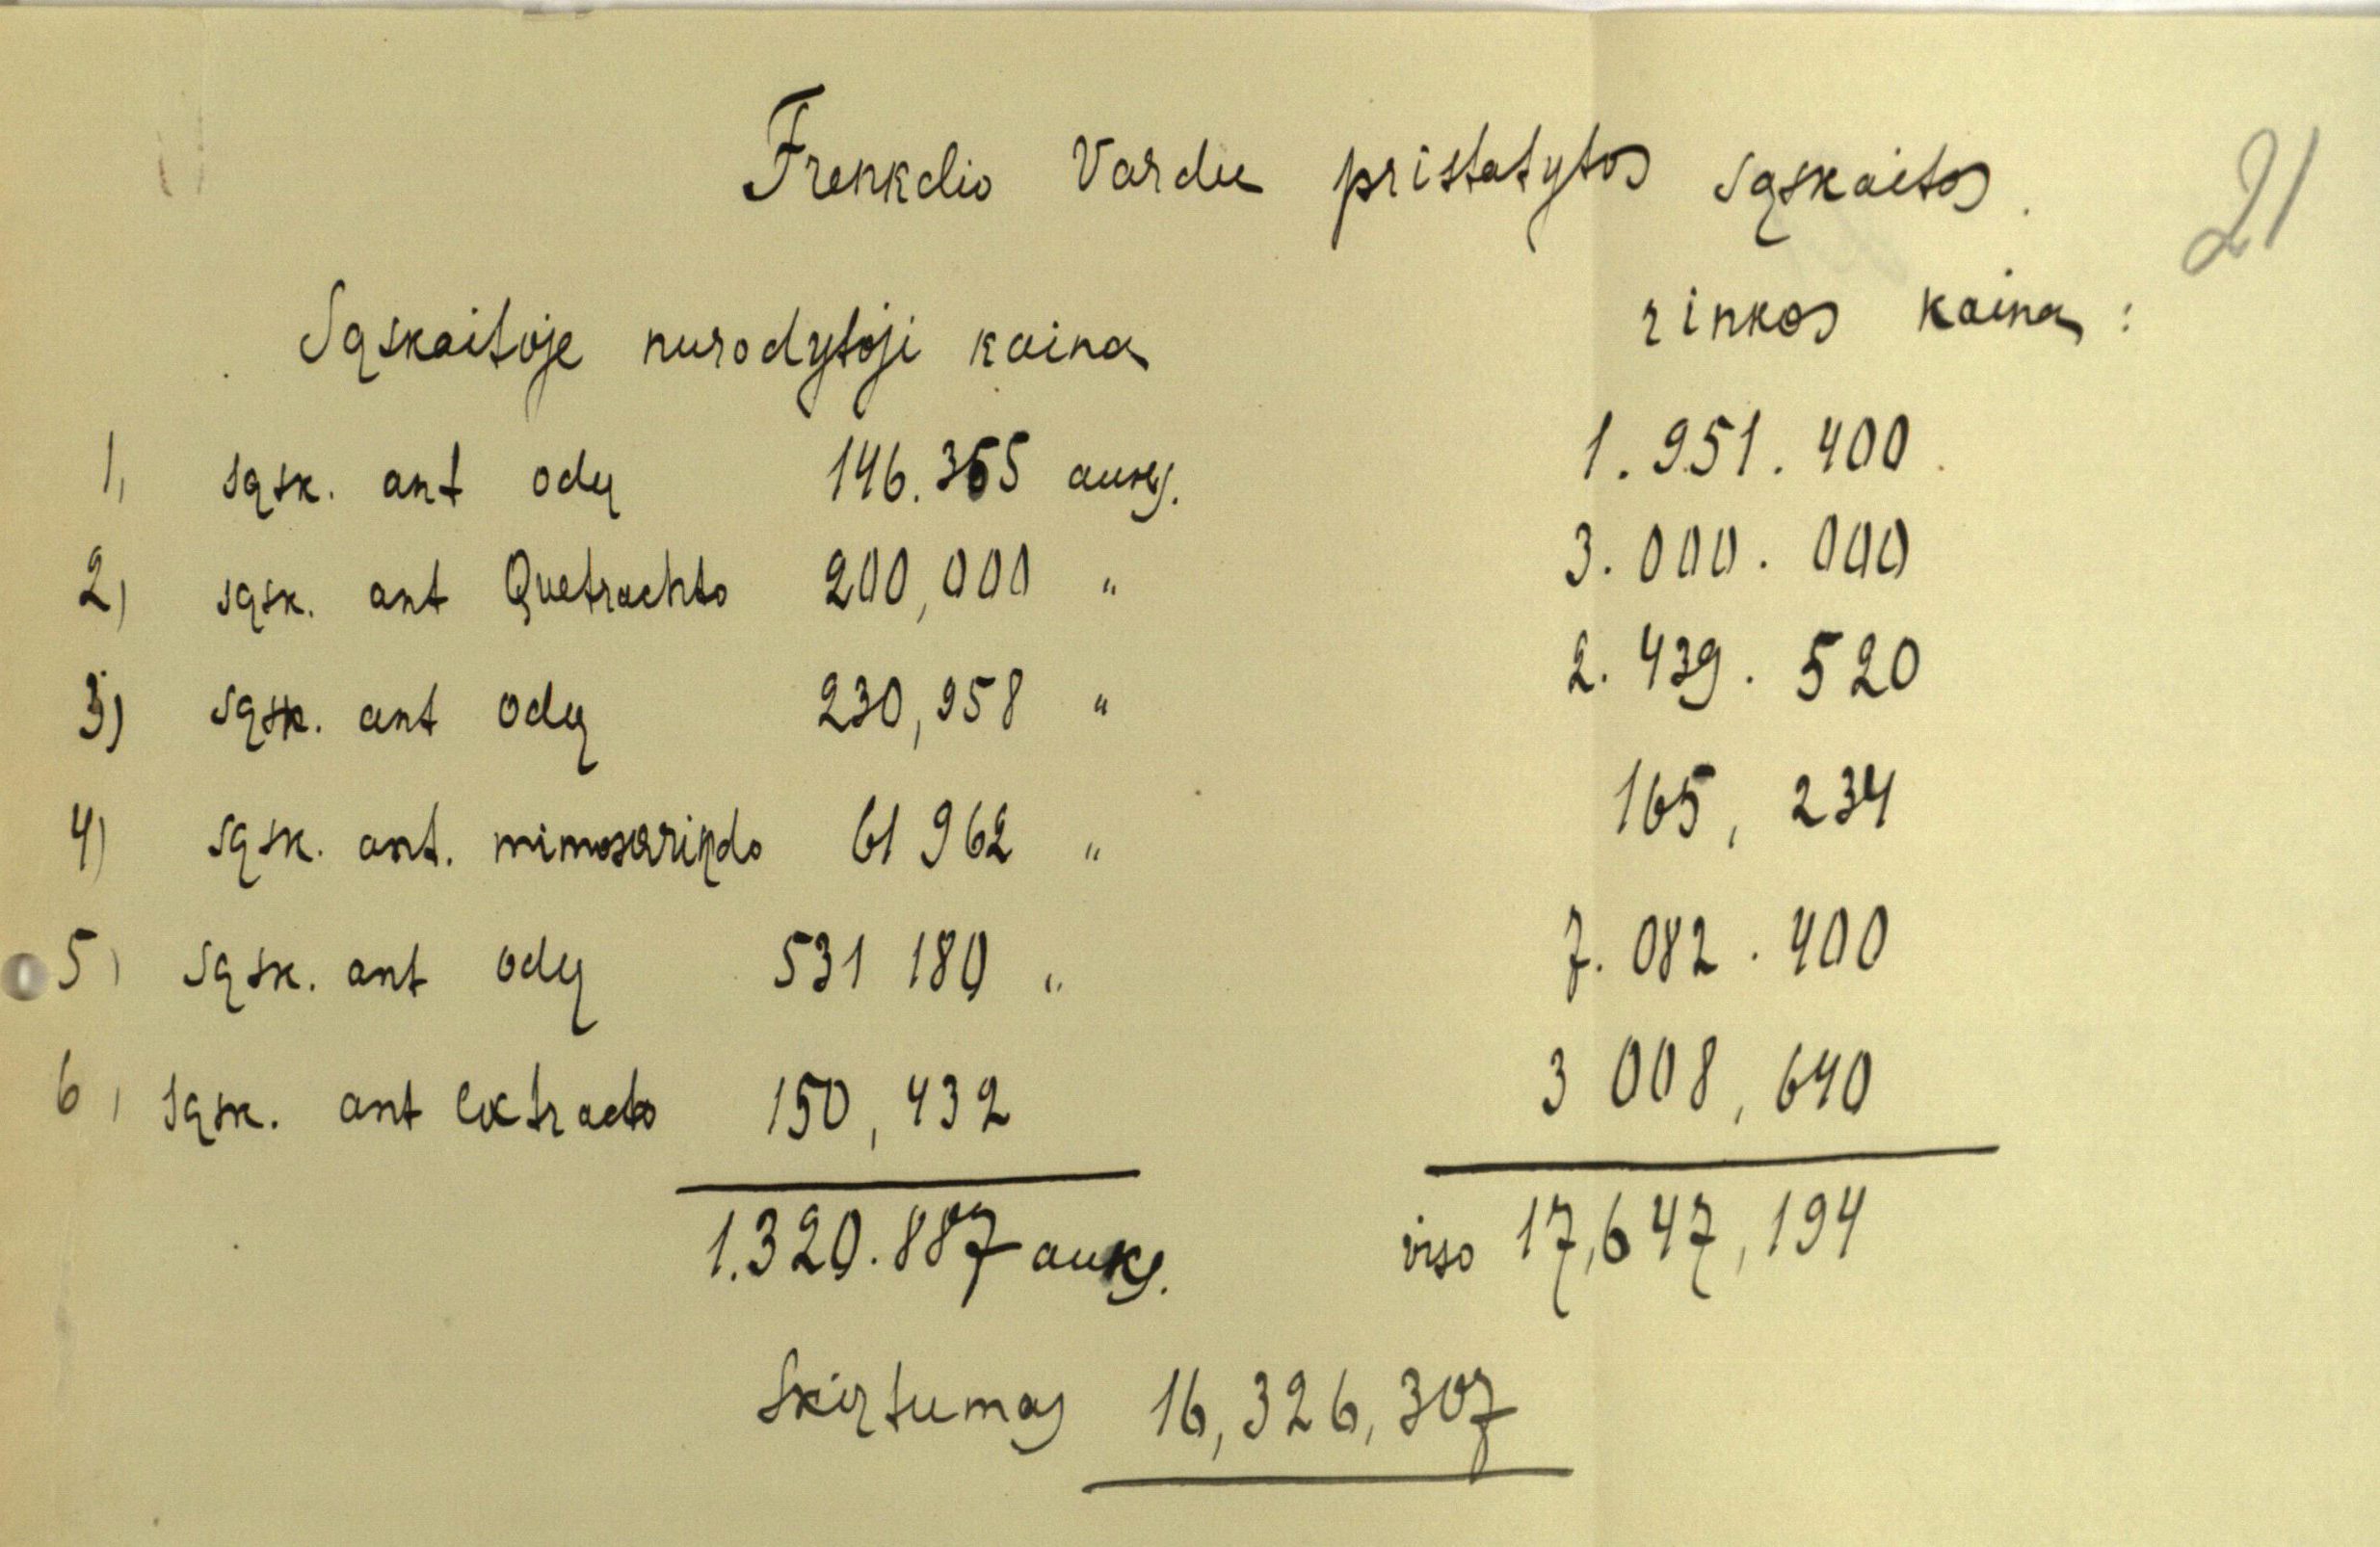 Frenkelio Vardu pristatytos sąskaitos.
21
Sąskaitoje nurodytoji kaina rinkos kaina:
1, sąsk. ant odų 146.355 auks. 1.951.400.
2) sąsk. ant Quetrachto 200,000 " 3.000.000
3) sąsk. ant odų 230,958 " 2.439.520
4) sąsk. ant. mimosarindo 61 962 " 165,234
5) sąsk. ant odų 531 180 " 7.082.400
6, sąsk. ant extracto 150,432 3 008,640
1.320.887 auks. viso 17,647,194
Skirtumas 16,326,307